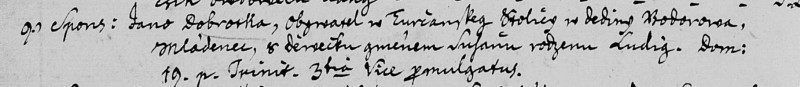 9.) Spons: Jano Dobrotka, obywatel w Turčanskeg Stolicy w dedine Bodorowa,
Mládenec, s děwečku gménem Susanu rodzenu Ludig. Dom:
19. p. Trinit. 3tia Vice promulgatus.